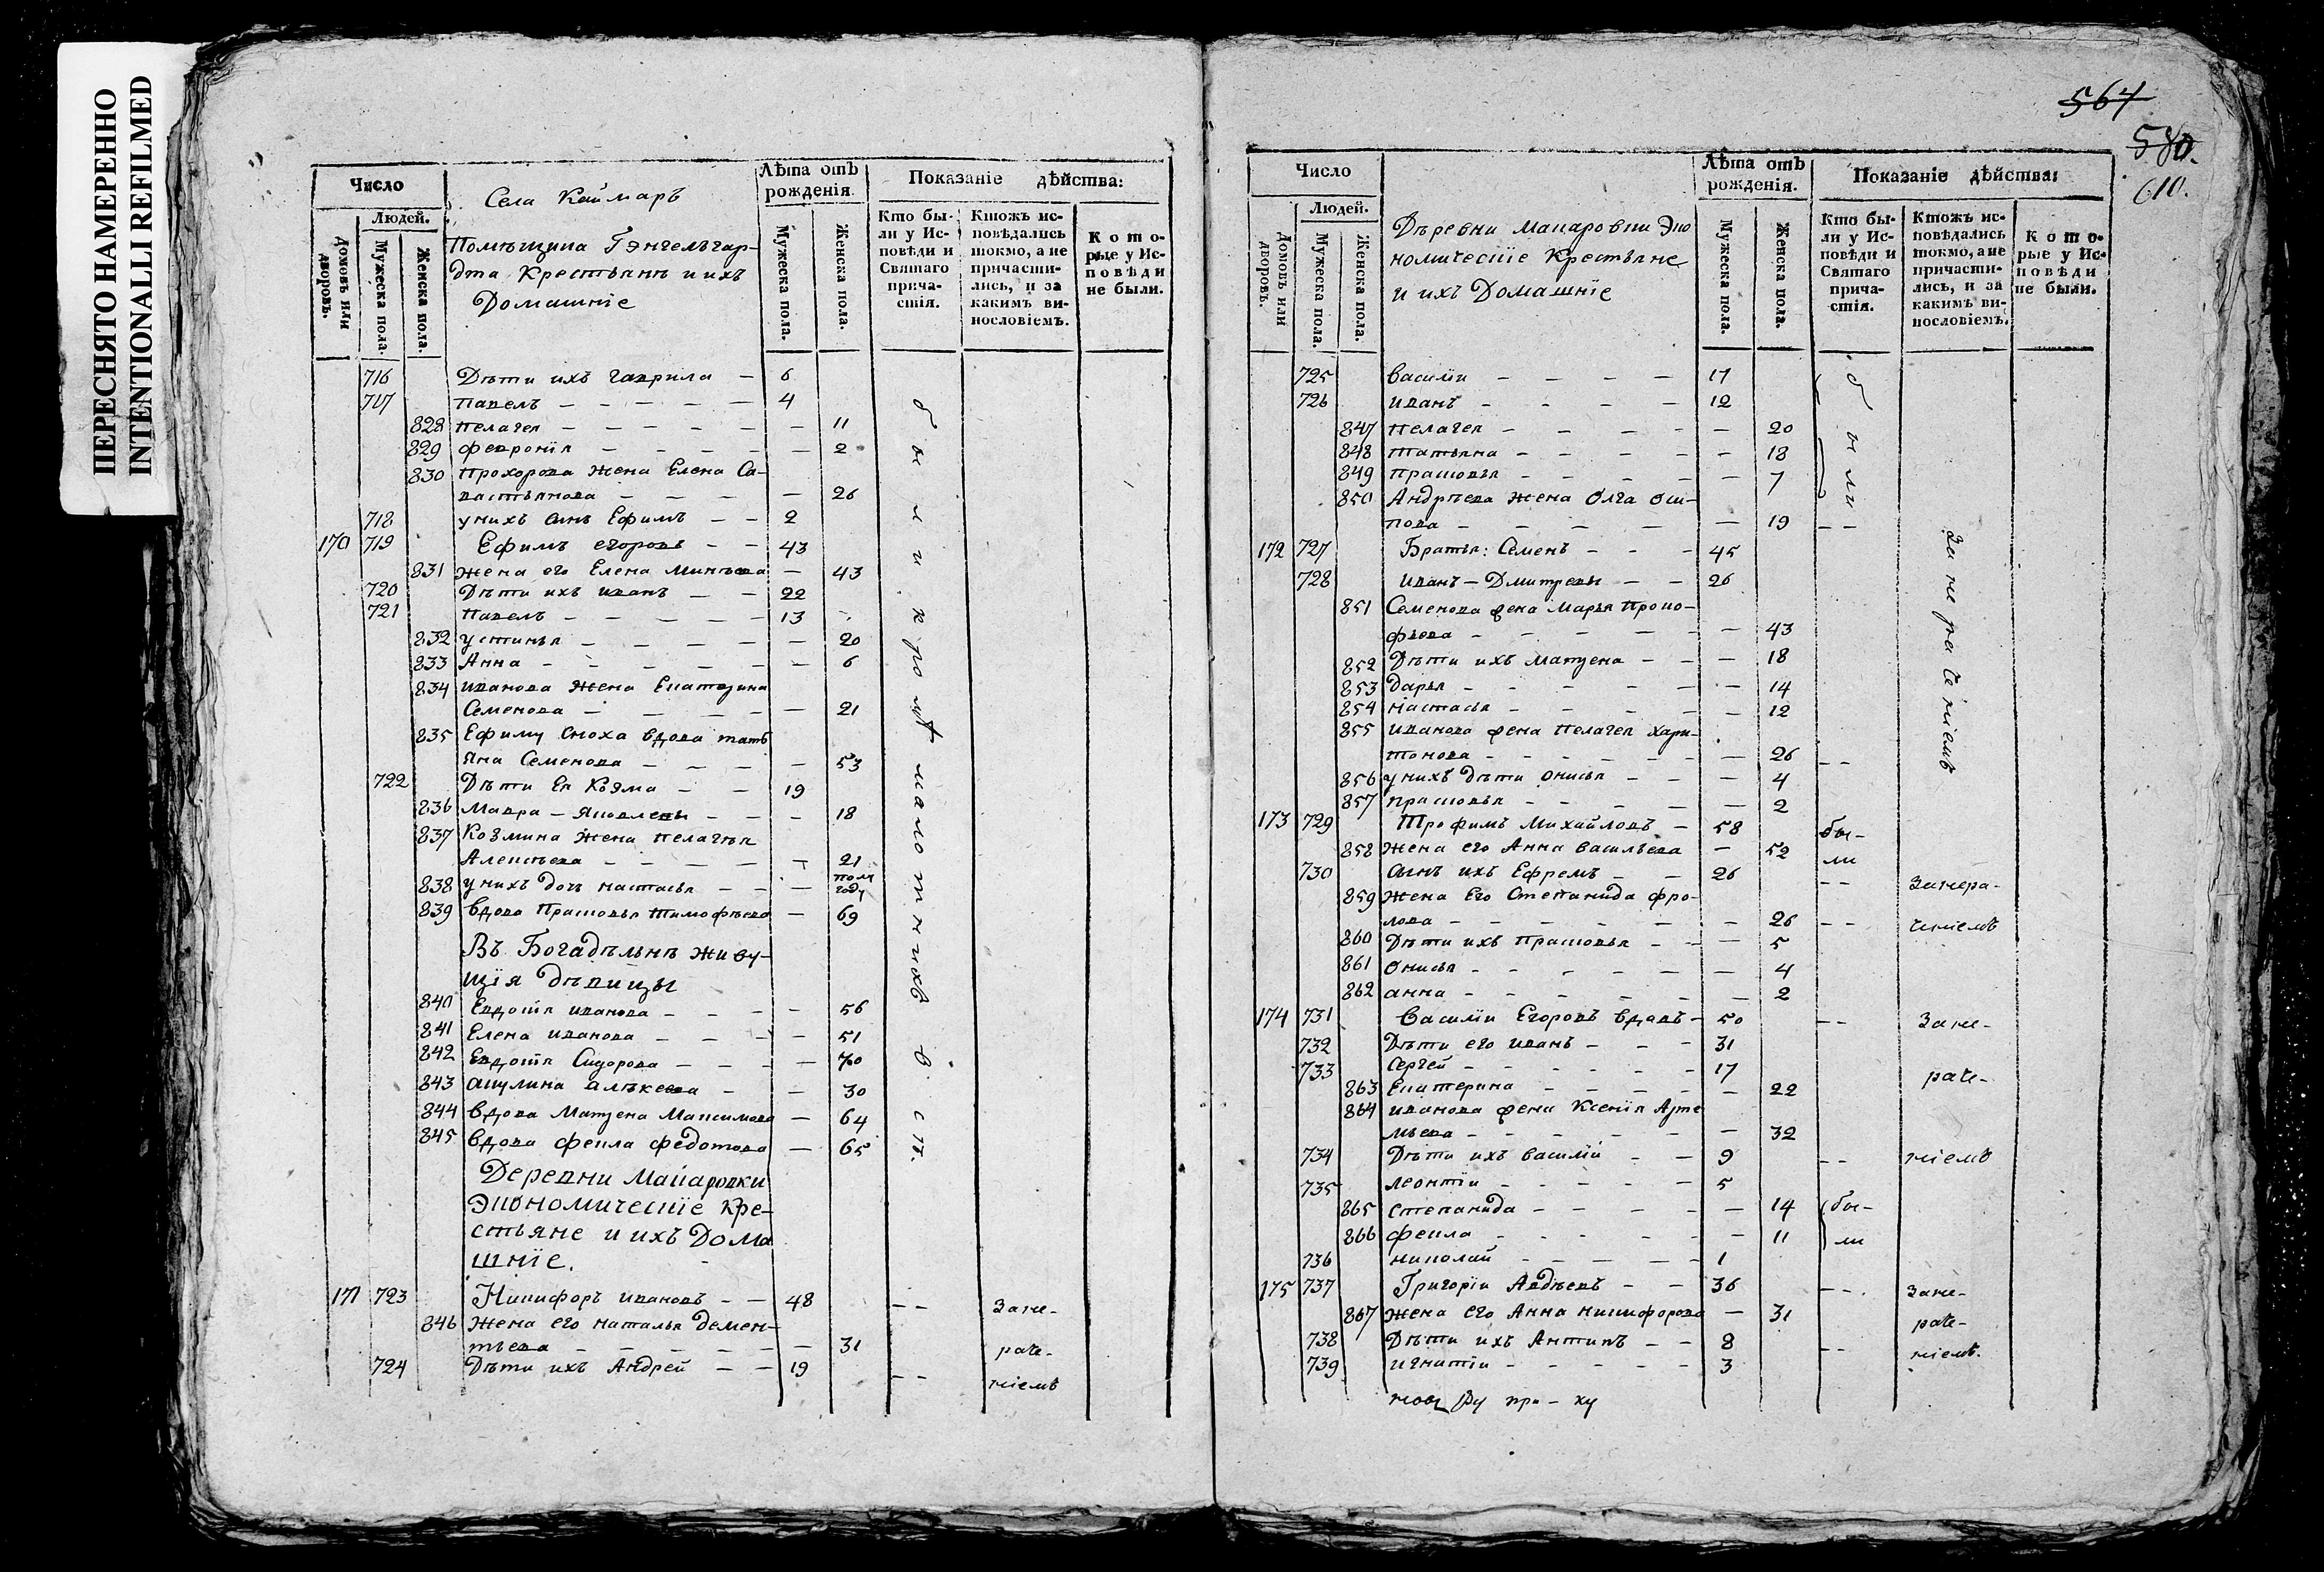 ПЕРЕСНЯТО НАМЕРЕННО
INTENTIONALLI REFILMED
Число
Людей.
Домовъ или дворовъ.
Мужеска пола.
Женска пола.
Села Каймаръ
Помѣщика Гэнгельгар-
дта Крестьянъ и ихъ
Домашнїе
Лѣта отъ рожденія.
Мужеска пола.
Женска пола.
Показаніе дѣйства:
Кто бы-
ли у Ис-
повѣди и
Святаго
прича-
стія.
Ктожъ ис-
повѣдались
токмо, а не
причасти-
лись, и за
какимъ ви-
нословіемъ.
Кото-
рые у Ис-
повѣди
не были.
716 Дѣти ихъ гаврила — 6
717 павелъ — — — — — 4
828 пелагея — — — — — — 11
829 феврониїя — — — — — 2
830 прохорова жена Елена Са-
вастьянова — — — — 26
718 у нихъ сынъ Ефимъ — — 2
170 719 Ефимъ егоровъ — — 43
831 жена его Елена Минѣева — 43
720 Дѣти ихъ иванъ — — 22
721 Павелъ — — — — — 13
832 устинья — — — — — 20
833 Анна — — — — — — 6
834 иванова жена Екатерина
Семенова — — — — — 21
835 Ефиму сноха вдова тать
яна Семенова — — — — 53
722 Дѣти Ея Козма — — 19
836 Мавра — Яковлевы — — — 18
837 Козмина жена пелагѣя
Алексѣева — — — — — 21
838 у нихъ дочь настасья — — — пол
году
839 вдова Прасковья тимофѣева — 69
Въ Богадѣльнѣ живу-
щїя дѣвицы
840 Евдотїя иванова — — — — 56
841 Елена иванова — — — — 51
842 Евдотїя Сидорова — — — — 70
843 акулина алѣксеева — — 30
844 вдова Матрена Максимова — 64
845 вдова фекла федотова — 65
Деревни Макаровки
Экономическїе Кре-
стьяне и ихъ Дома
шнїе.
171 723 Никифоръ ивановъ — — 48 — — Зане-
846 жена его наталья демен-
тьева — — — — — — 31 раче-
724 Дѣти ихъ Андрей — — 19 — — нїемъ
были кромѣ малолѣтнихъ
567
580.
610.
Число
Людей.
Домовъ или дворовъ.
Мужеска пола.
Женска пола.
Дѣревни макаровки Эко
номическїе Крестьяне
и ихъ Домашнїе
Лѣта отъ рожденія.
Мужеска пола.
Женска пола.
Показаніе дѣйства:
Кто бы-
ли у Ис-
повѣди и
Святаго
прича-
стія.
Ктожъ ис-
повѣдались
токмо, а не
причасти-
лись, и за
какимъ ви-
нословіемъ.
Кото-
рые у Ис-
повѣди
не были.
725 василїи — — — — 17
726 иванъ — — — — 12
847 пелагея — — — — — 20
848 татьяна — — — — — 18
849 прасковья — — — — — 7
850 Андрѣева жена Олга оси-
пова — — — — — 19 — —
были
172 727 Братья: Семенъ — — — 45
728 иванъ — Дмитревы — — 26
851 Семенова жена Марья Проко-
фьева — — — — — — 43
852 Дѣти ихъ матрена — — — 18
853 дарья — — — — — — 14
854 настасья — — — — — 12
855 иванова жена пелагея хари-
тонова — — — — — — 26 — —
856 у нихъ дѣти онисья — — — 4
857 прасковья — — — — — 2
занераченїемъ
173 729 Трофимъ Михайловъ — 58 бы-
858 жена его Анна васильева — 52 ли
730 сынъ ихъ Ефремъ — — 26 — — Занера-
859 жена Его Степанида фро-
лова — — — — — — 26 — — ченїемъ
860 Дѣти ихъ прасковья — — — 5
861 Онисья — — — — — — 4
862 анна — — — — — — 2
174 731 василїи Егоровъ вдовъ — 50 — — Зане-
732 Дѣти его иванъ — — — 31
733 Сергей — — — — — — 17 раче-
863 Екатерина — — — — — 22
864 иванова жена Ксенїя Арте
мьева — — — — — — 32
734 Дѣти ихъ василїи — — 9 — — нїемъ
735 леонтїи — — — — — 5
865 степанида — — — — — 14 бы-
866 фекла — — — — — — 11 ли
736 николай — — — — — 1
175 737 Григорїи Авдѣевъ — — 36 — — . Зане-
867 жена его Анна никифорова — 31 раче-
738 Дѣти ихъ Антипъ — — 8 — — нїемъ.
739 игнатїи — — — — — 3